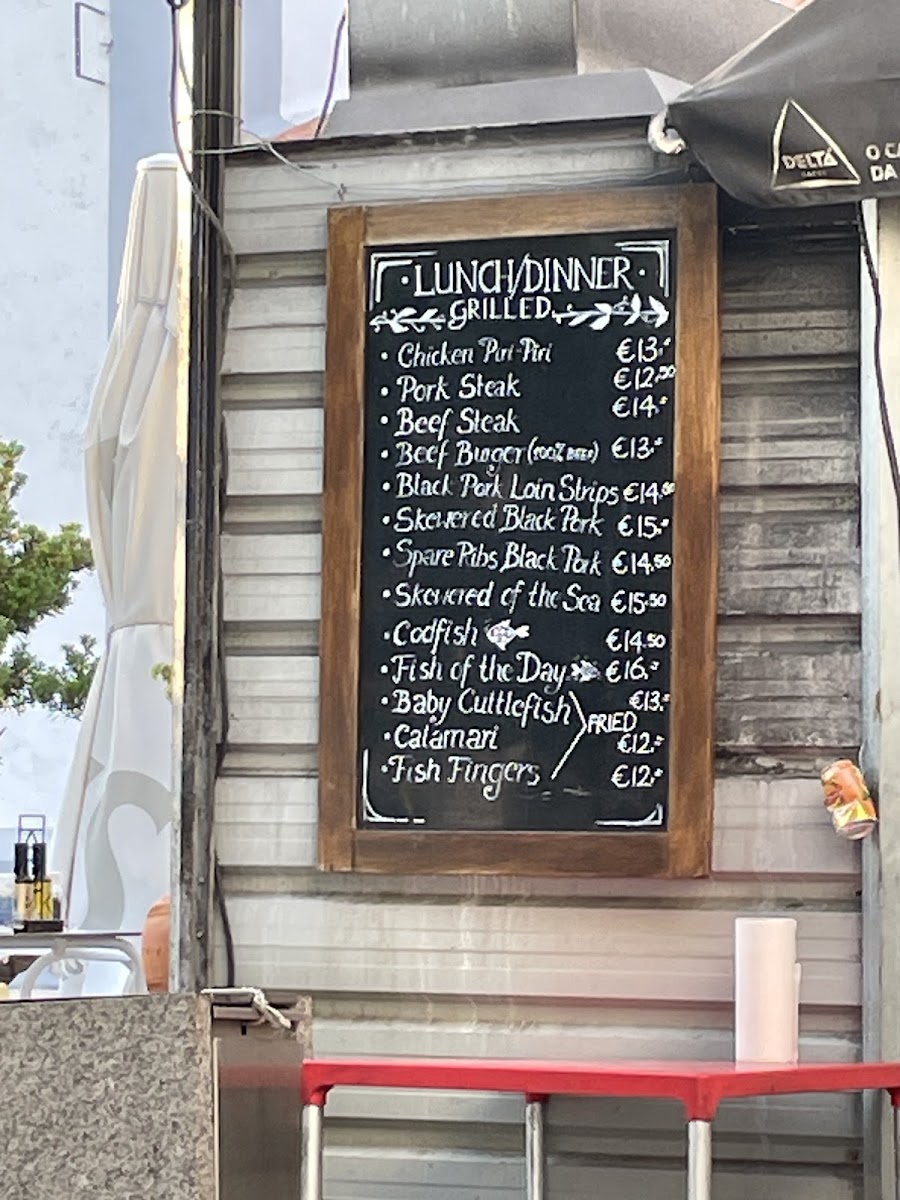 DELTA
O CA
DA
· LUNCH/DINNER ·
GRILLED
• Chicken Piri-Piri €13.-
• Pork Steak €12.50
• Beef Steak €14.-
• Beef Burger (100% BEEF) €13.-
• Black Pork Loin Strips €14.50
• Skewered Black Pork €15.-
• Spare Ribs Black Pork €14.50
• Skewered of the Sea €15.50
• Codfish €14.50
• Fish of the Day €16.-
• Baby Cuttlefish €13.-
FRIED
• Calamari €12.-
• Fish Fingers €12.-